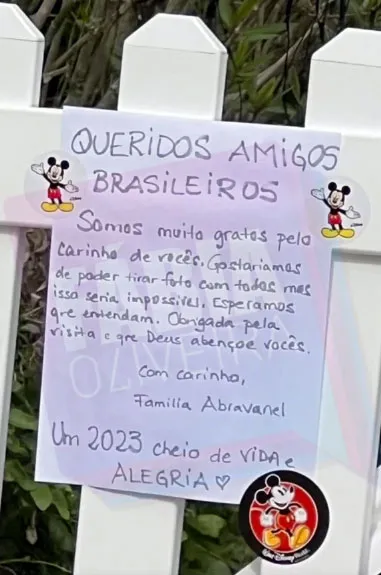 QUERIDOS AMIGOS
BRASILEIROS
Somos muito gratos pelo
carinho de vocês. Gostaríamos
de poder tirar foto com todos mas
isso seria impossível. Esperamos
que entendam. Obrigada pela
visita e que Deus abençoe vocês.
Com carinho,
Família Abravanel
Um 2023 cheio de VIDA e
ALEGRIA
OLIVEIRA
Walt Disney World